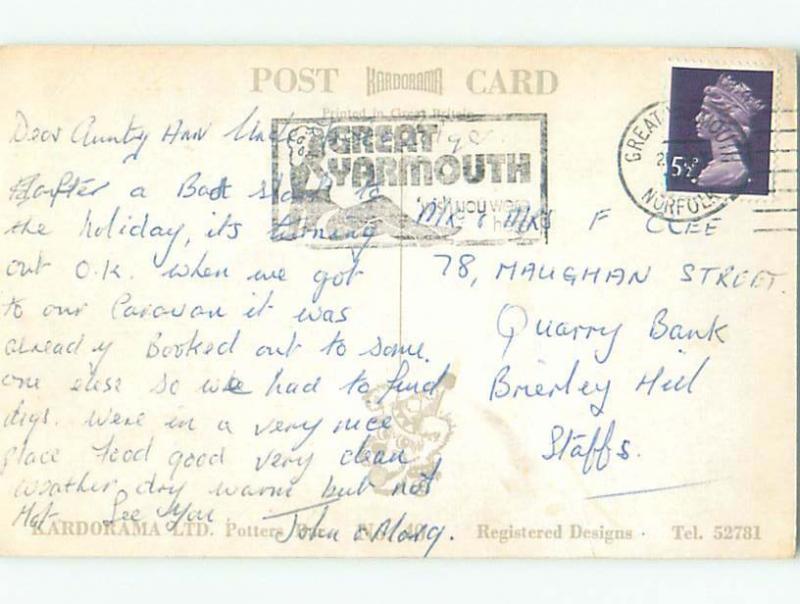 POST KARDORAMA CARD
Printed in Great Britain
GREAT
YARMOUTH
wish you were
here
GREAT YARMOUTH
NORFOLK
5½P
Dear Aunty Ann Uncle
after a Bad start to
the holiday, its turning
out O.K. when we got
to our Caravan it was
already Booked out to some.
one else so we had to find
digs. were in a very nice
place food good very clean
weather dry warm but not
Hot. See You
John & Marg.
MR & MRS F CLEE
78, MAUGHAN STREET.
Quarry Bank
Brierley Hill
Staffs.
KARDORAMA LTD. Potters Bar. Registered Designs · Tel. 52781